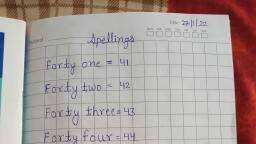 Date 27/1/22
Spellings
Forty one = 41
Forty two = 42
Forty three = 43
Forty four = 44